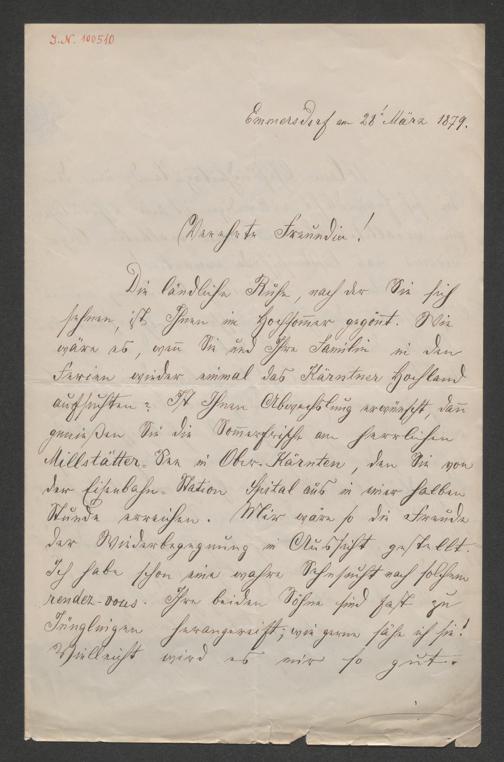 J.N. 100510
Emmersdorf am 28t März 1879.
Verehrte Freundin!
Die ländliche Ruhe, nach der Sie sich
sehnen, ist Ihnen im Hochsom̅er gegön̅t. Wie
wäre es, wen̅ Sie und Ihre Familie in den
Ferien wieder einmal das Kärntner Hochland
aufsuchten? Ist Ihnen Abwechslung erwünscht, dan̅
genießen Sie die Som̅erfrische am herrlichen
Millstätter-See in Ober-Kärnten, den Sie von
der Eisenbahn-Station Spital aus in einer halben
Stunde erreichen. Mir wäre so die Freude
der Wiederbegegnung in Aussicht gestellt.
Ich habe schon eine wahre Sehnsucht nach solchem
rendez-vous. Ihre beiden Söhne sind fast zu
Jünglingen herangereift; wie gerne sähe ich sie!
Vielleicht wird es mir so gut.